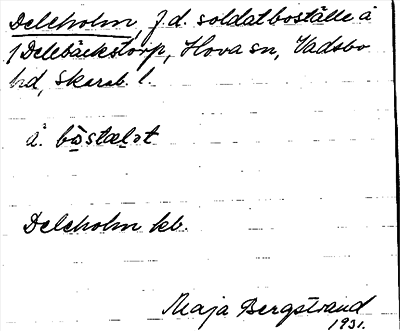 Deleholm, f.d. soldatboställe å
1 Delebäckstorp, Hova sn, Vadsbo
hd, Skarab. l.
å. bòstælət
Deleholm kb.
Maja Bergstrand
1931.